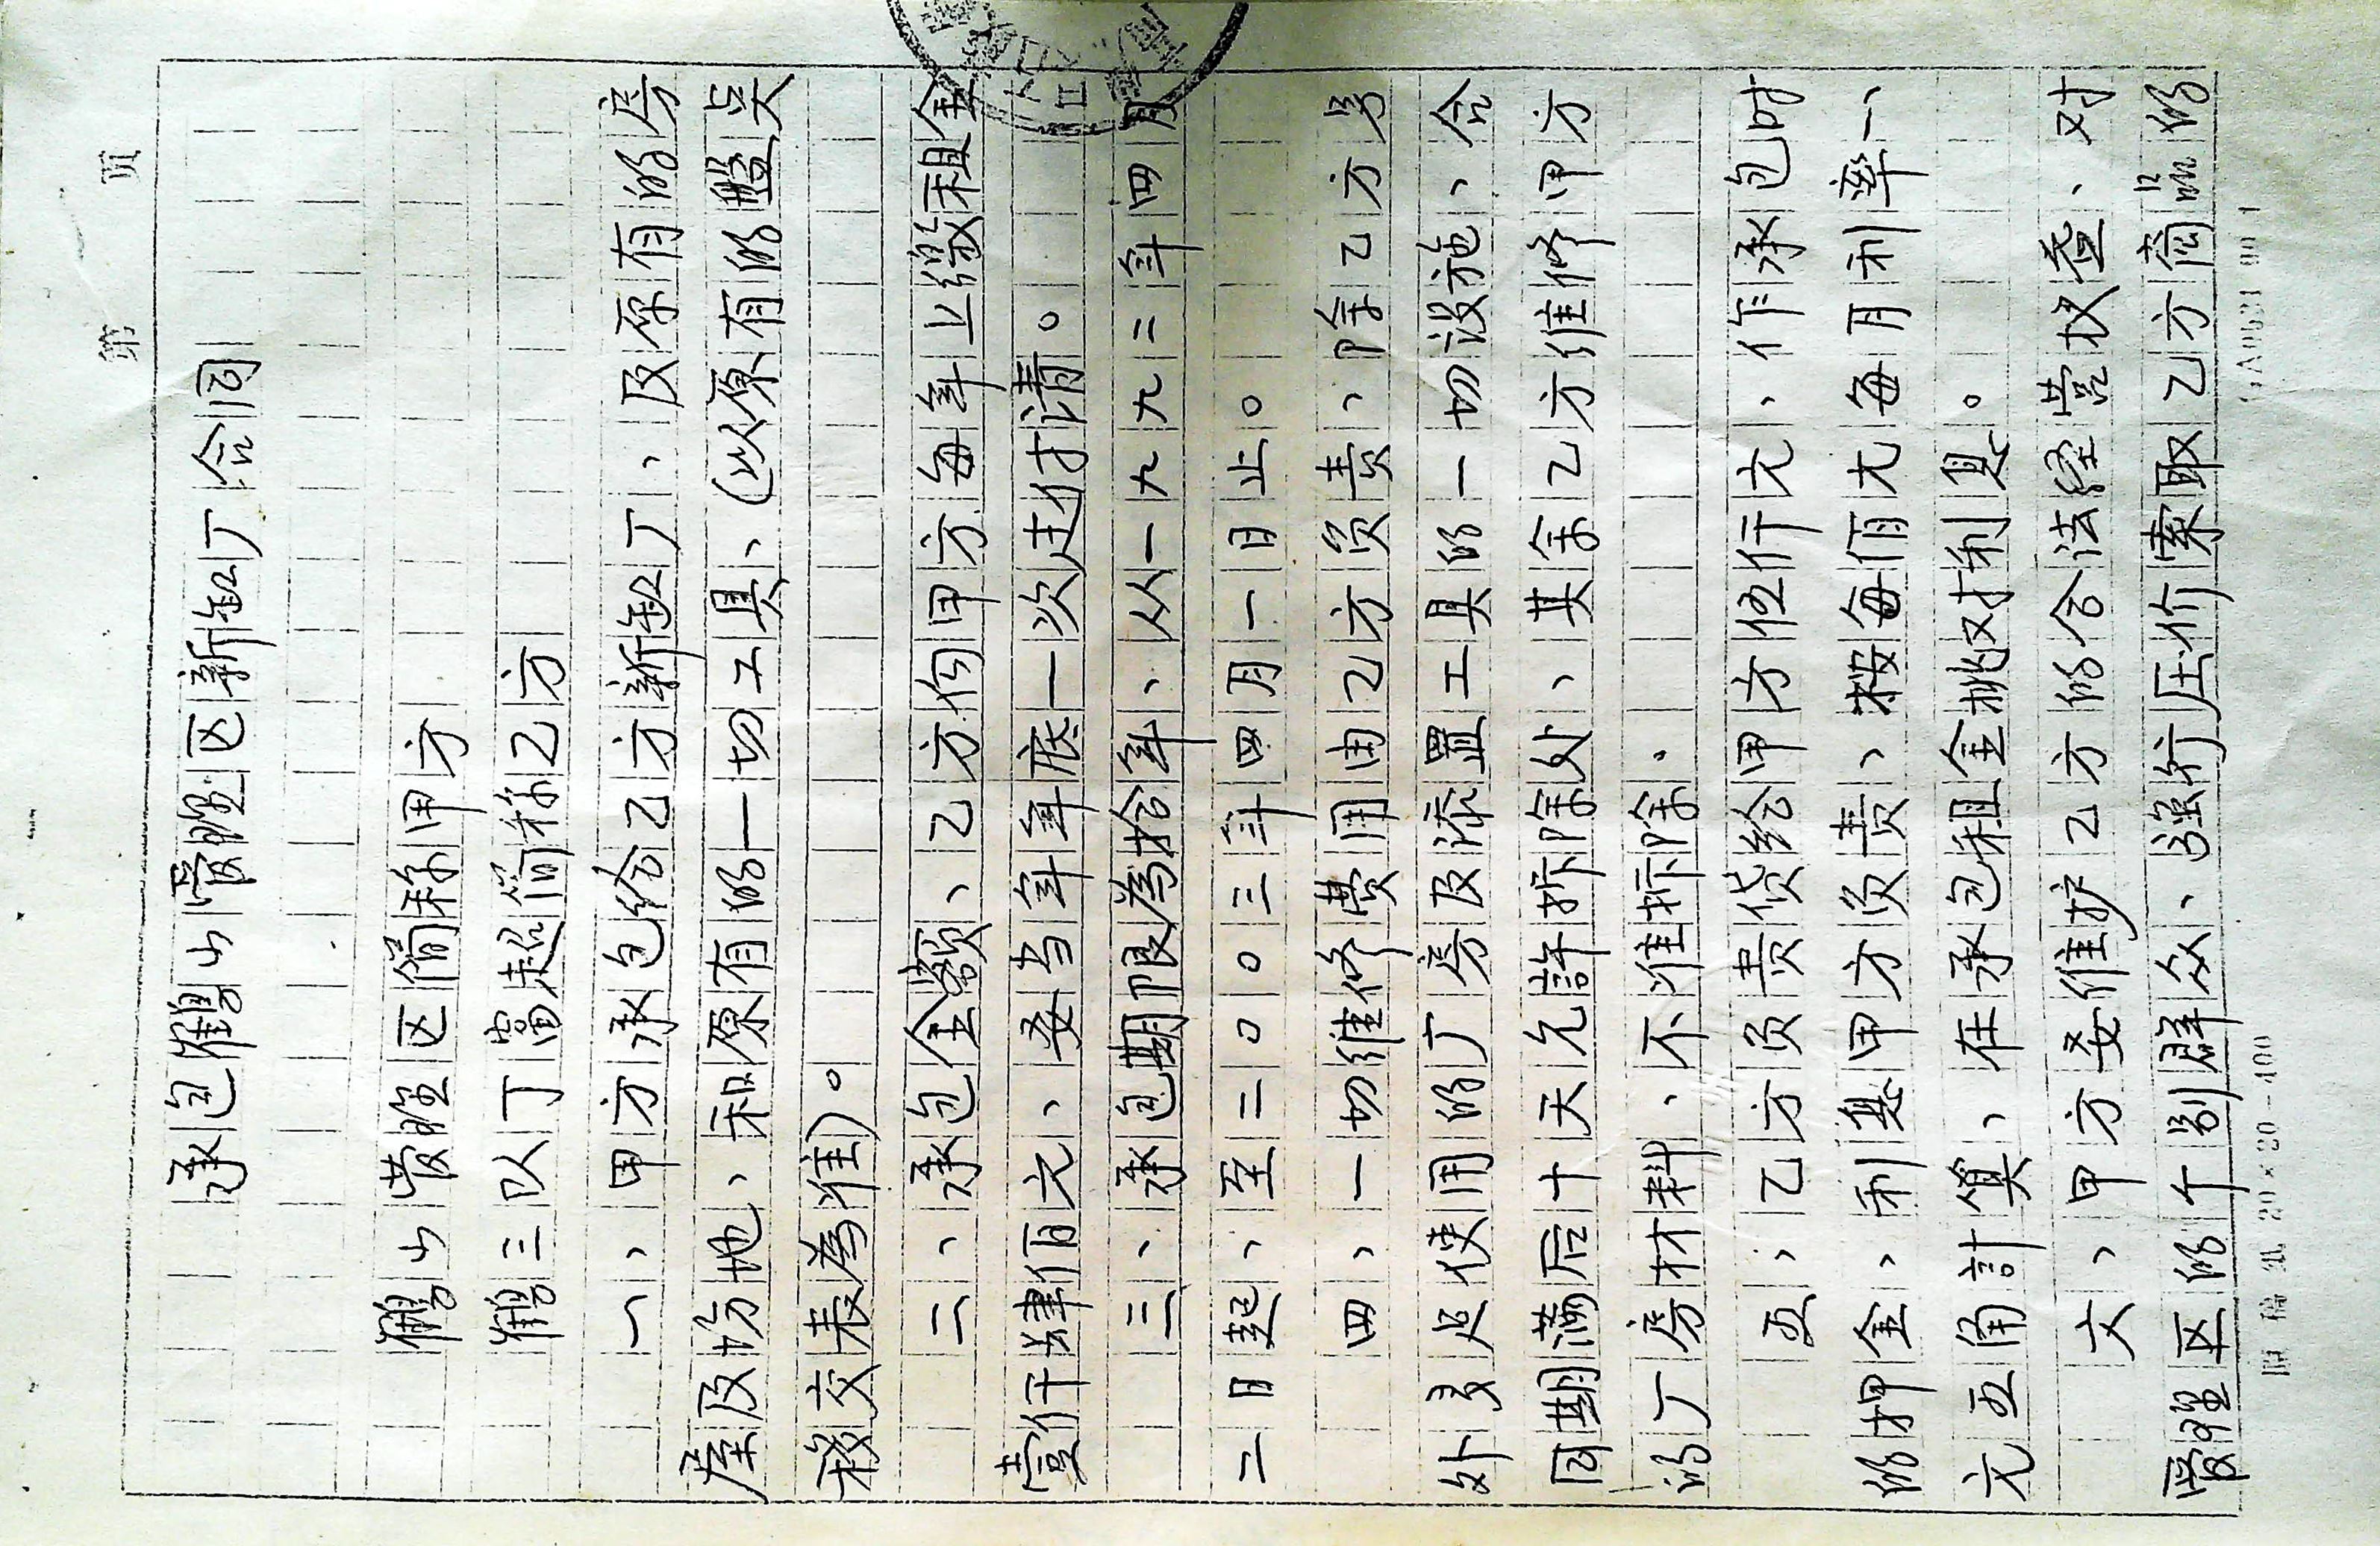 第 页
承包鹤山管理区新缸厂合同
鹤山管理区简称甲方
鹤三队丁富超简称乙方
一、甲方承包给乙方新缸厂、及原有的房
屋及场地、和原有的一切工具、(以原有的盤点
移交表為准)。
二、承包金额、乙方向甲方每年上缴租金
壹仟肆佰元、要当年年底一次过付清。
三、承包期限為拾年、从一九九二年四月
二日起、至二〇〇三年四月一日止。
四、一切维修费用由乙方负责、除乙方另
外及使用的厂房及添置工具的一切设施、合
同期满后十天允許拆除处、其余乙方维修甲方
的厂房材料、不准拆除.
五、乙方负责贷给甲方伍仟元、作承包时
的押金、利息甲方负责、按每佰元每月利率一、
元五角計算、在承包租金桃对利息。
六、甲方要维护乙方的合法经营权益、对
管理区的个别群众、强行压价索取乙方商品的
原稿纸 20×20=400